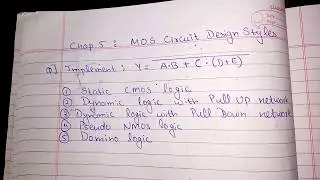 Chap 5 : MOS Circuit Design Styles
Q] Implement : Y = A·B + C·(D+E)
① Static CMOS logic
② Dynamic logic with Pull Up network
③ Dynamic logic with Pull Down network
④ Pseudo NMOS logic
⑤ Domino logic